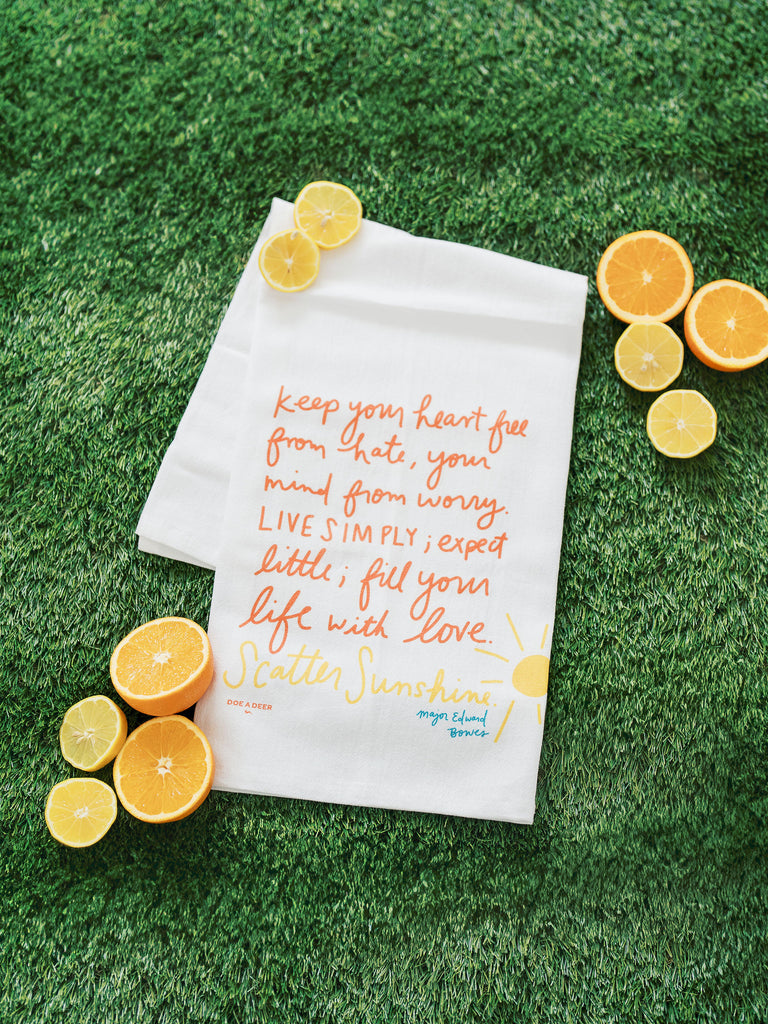 keep your heart free
from hate, your
mind from worry.
LIVE SIMPLY; expect
little; fill your
life with love.
Scatter Sunshine.
DOE A DEER
Major Edward
Bowes